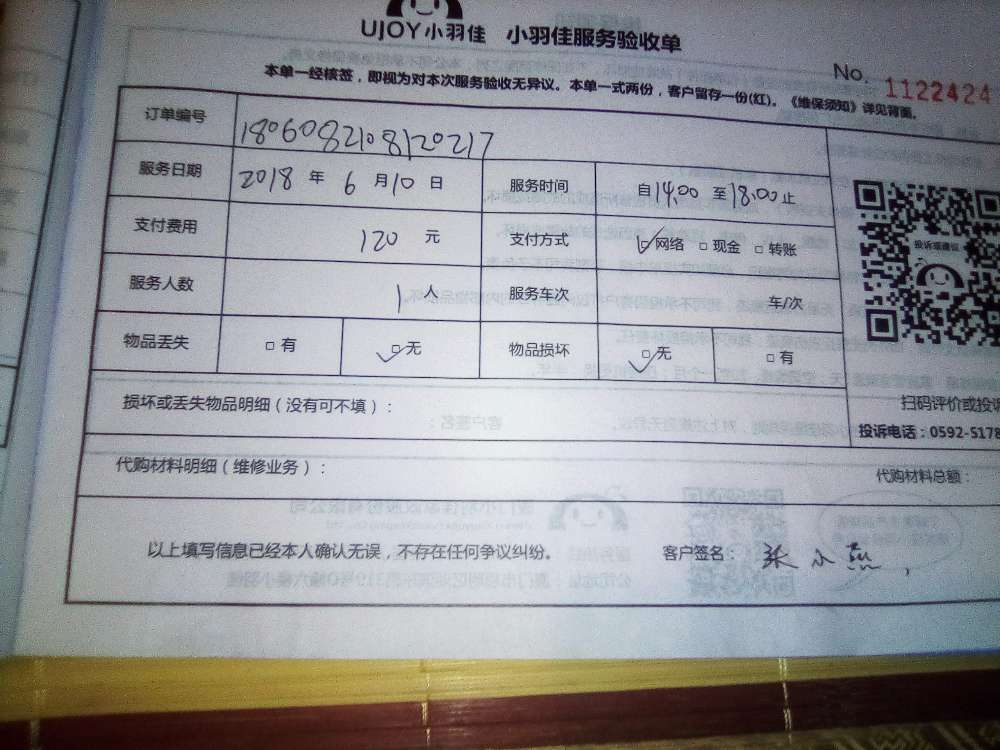 UJOY小羽佳 小羽佳服务验收单
No. 1122424
本单一经核签，即视为对本次服务验收无异议。本单一式两份，客户留存一份(红)。《维保须知》详见背面。
订单编号 1806082108120217
服务日期 2018 年 6 月 10 日 服务时间 自14:00 至18:00止
支付费用 120 元 支付方式 ☑网络 □现金 □转账
投诉或建议
服务人数 1 人 服务车次 车/次
物品丢失 □有 ☑无 物品损坏 ☑无 □有
损坏或丢失物品明细（没有可不填）：
扫码评价或投诉
投诉电话：0592-5178
代购材料明细（维修业务）： 代购材料总额：
以上填写信息已经本人确认无误，不存在任何争议纠纷。 客户签名：张小燕